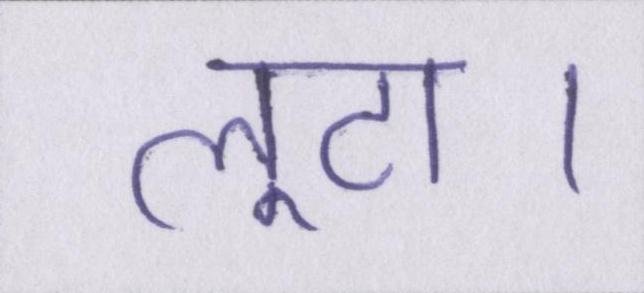 लूटा।